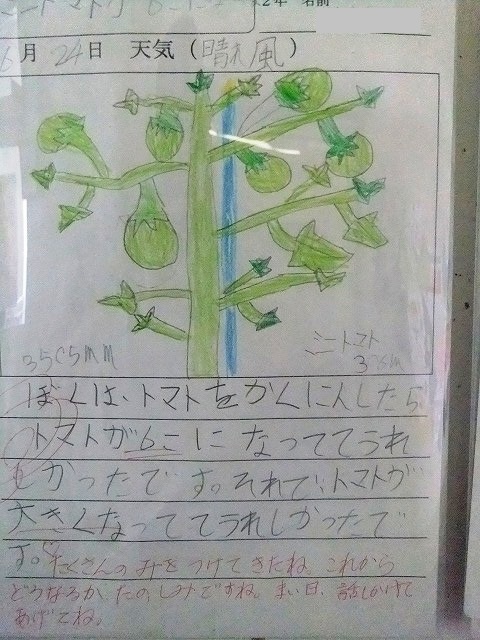 ミニトマトが
2年 名前
6月24日 天気（晴れ風）
35c5mm
ミニトマト
ぼくは、トマトをかくにんしたら
トマトが6こになっててうれ
しかったです。それで、トマトが
大きくなっててうれしかったで
す。
たくさんのみをつけてきたね。これから
どうなるか たのしみですね。まい日、話しかけて
あげてね。